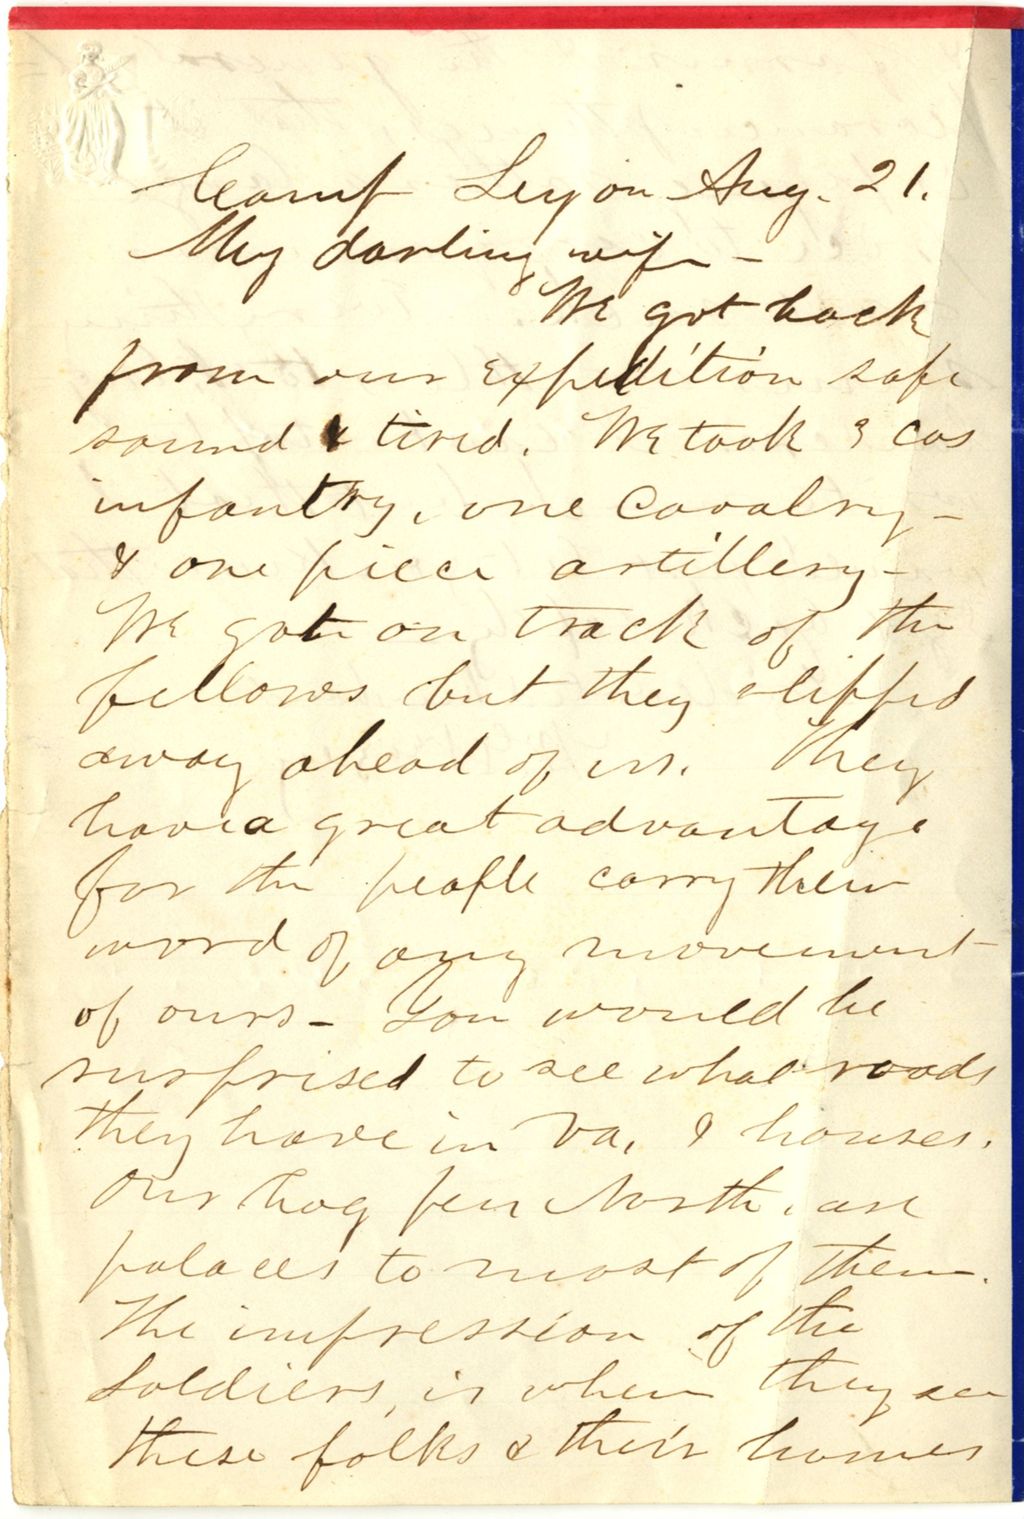 Camp Lyon Aug. 21.
My darling wife -
We got back
from our expedition safe
sound & tired. We took 3 cos
infantry, one Cavalry -
& one piece artillery -
We got on track of the
fellows but they slipped
away ahead of us. They
have a great advantage
for the people carry them
word of any movement
of ours - You would be
surprised to see what roads
they have in Va, & houses.
Our hog pen North, are
palaces to most of them.
The impression of the
Soldiers, is when they see
these folks & their homes